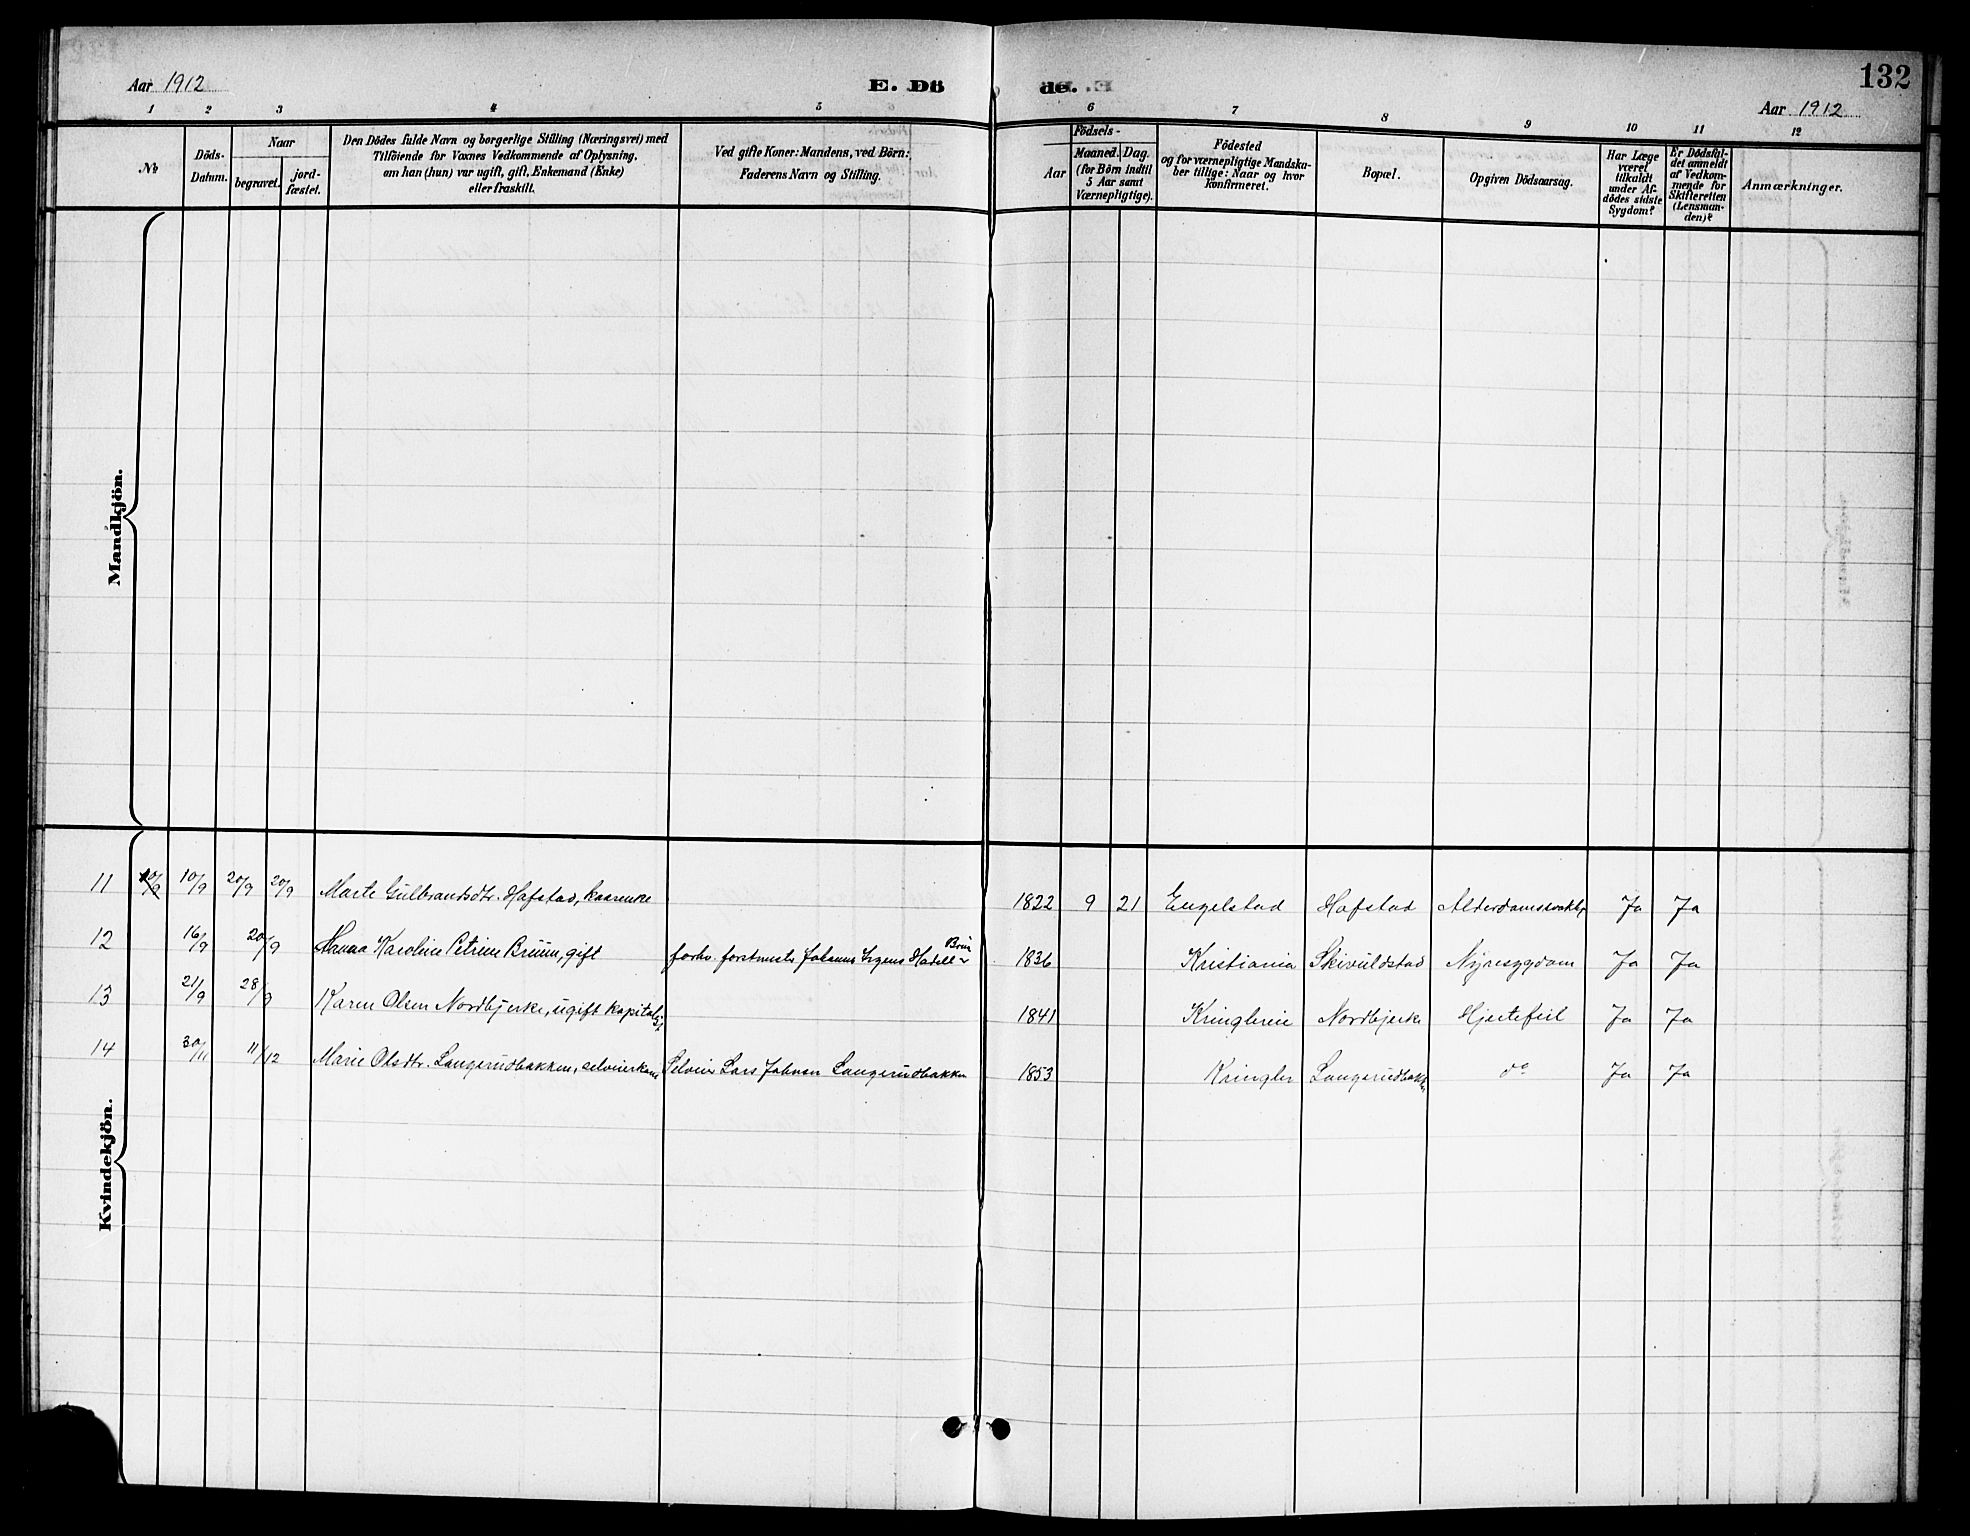 Aar 1912
E. Dö
de.
132
Aar 1912
1 2 3 4 5 6 7 8 9 10 11 12
No
Döds-Datum.
Naar
begravet.
jord-fæstet.
Den Dödes fulde Navn og borgerlige Stilling (Næringsvei) med
Tilföiende for Voxnes Vedkommende af Oplysning,
om han (hun) var ugift, gift, Enkemand (Enke)
eller fraskilt.
Ved gifte Koner: Mandens, ved Börn:
Faderens Navn og Stilling.
Födsels-
Aar
Maaned. Dag.
(for Börn indtil
5 Aar samt
Værnepligtige).
Födested
og for værnepligtige Mandska-
ber tillige: Naar og hvor
konfirmeret.
Bopæl.
Opgiven Dödsaarsag.
Har Læge
været
tilkaldt
under Af-
dödes sidste
Sygdom?
Er Dödsfal-
det anmeldt
af Vedkom-
mende for
Skifteretten
(Lensman-
den)?
Anmærkninger.
Mandkjön.
Kvindekjön.
11 10/9 10/9 20/9 20/9 Marte Gulbrandsdtr. Hafstad, kaarenke 1822 9 21 Engelstad Hafstad Ja Ja
12 16/9 20/9 Hanna Karoline Petrine Bruun, gift forhv. forstmstr. Johannes 1836 Kristiania Skivuldstad Nyresygdom Ja Ja
13 21/9 28/9 Karen Olsen Nordbjerke, ugift 1841 Nordbjerke Hjertefeil Ja Ja
14 30/11 11/12 Marie Olsdtr. Langerudbakken, selveierkone Selveier Lars Johnsen Langerudbakken 1853 Kringler Langerudbakken do Ja Ja